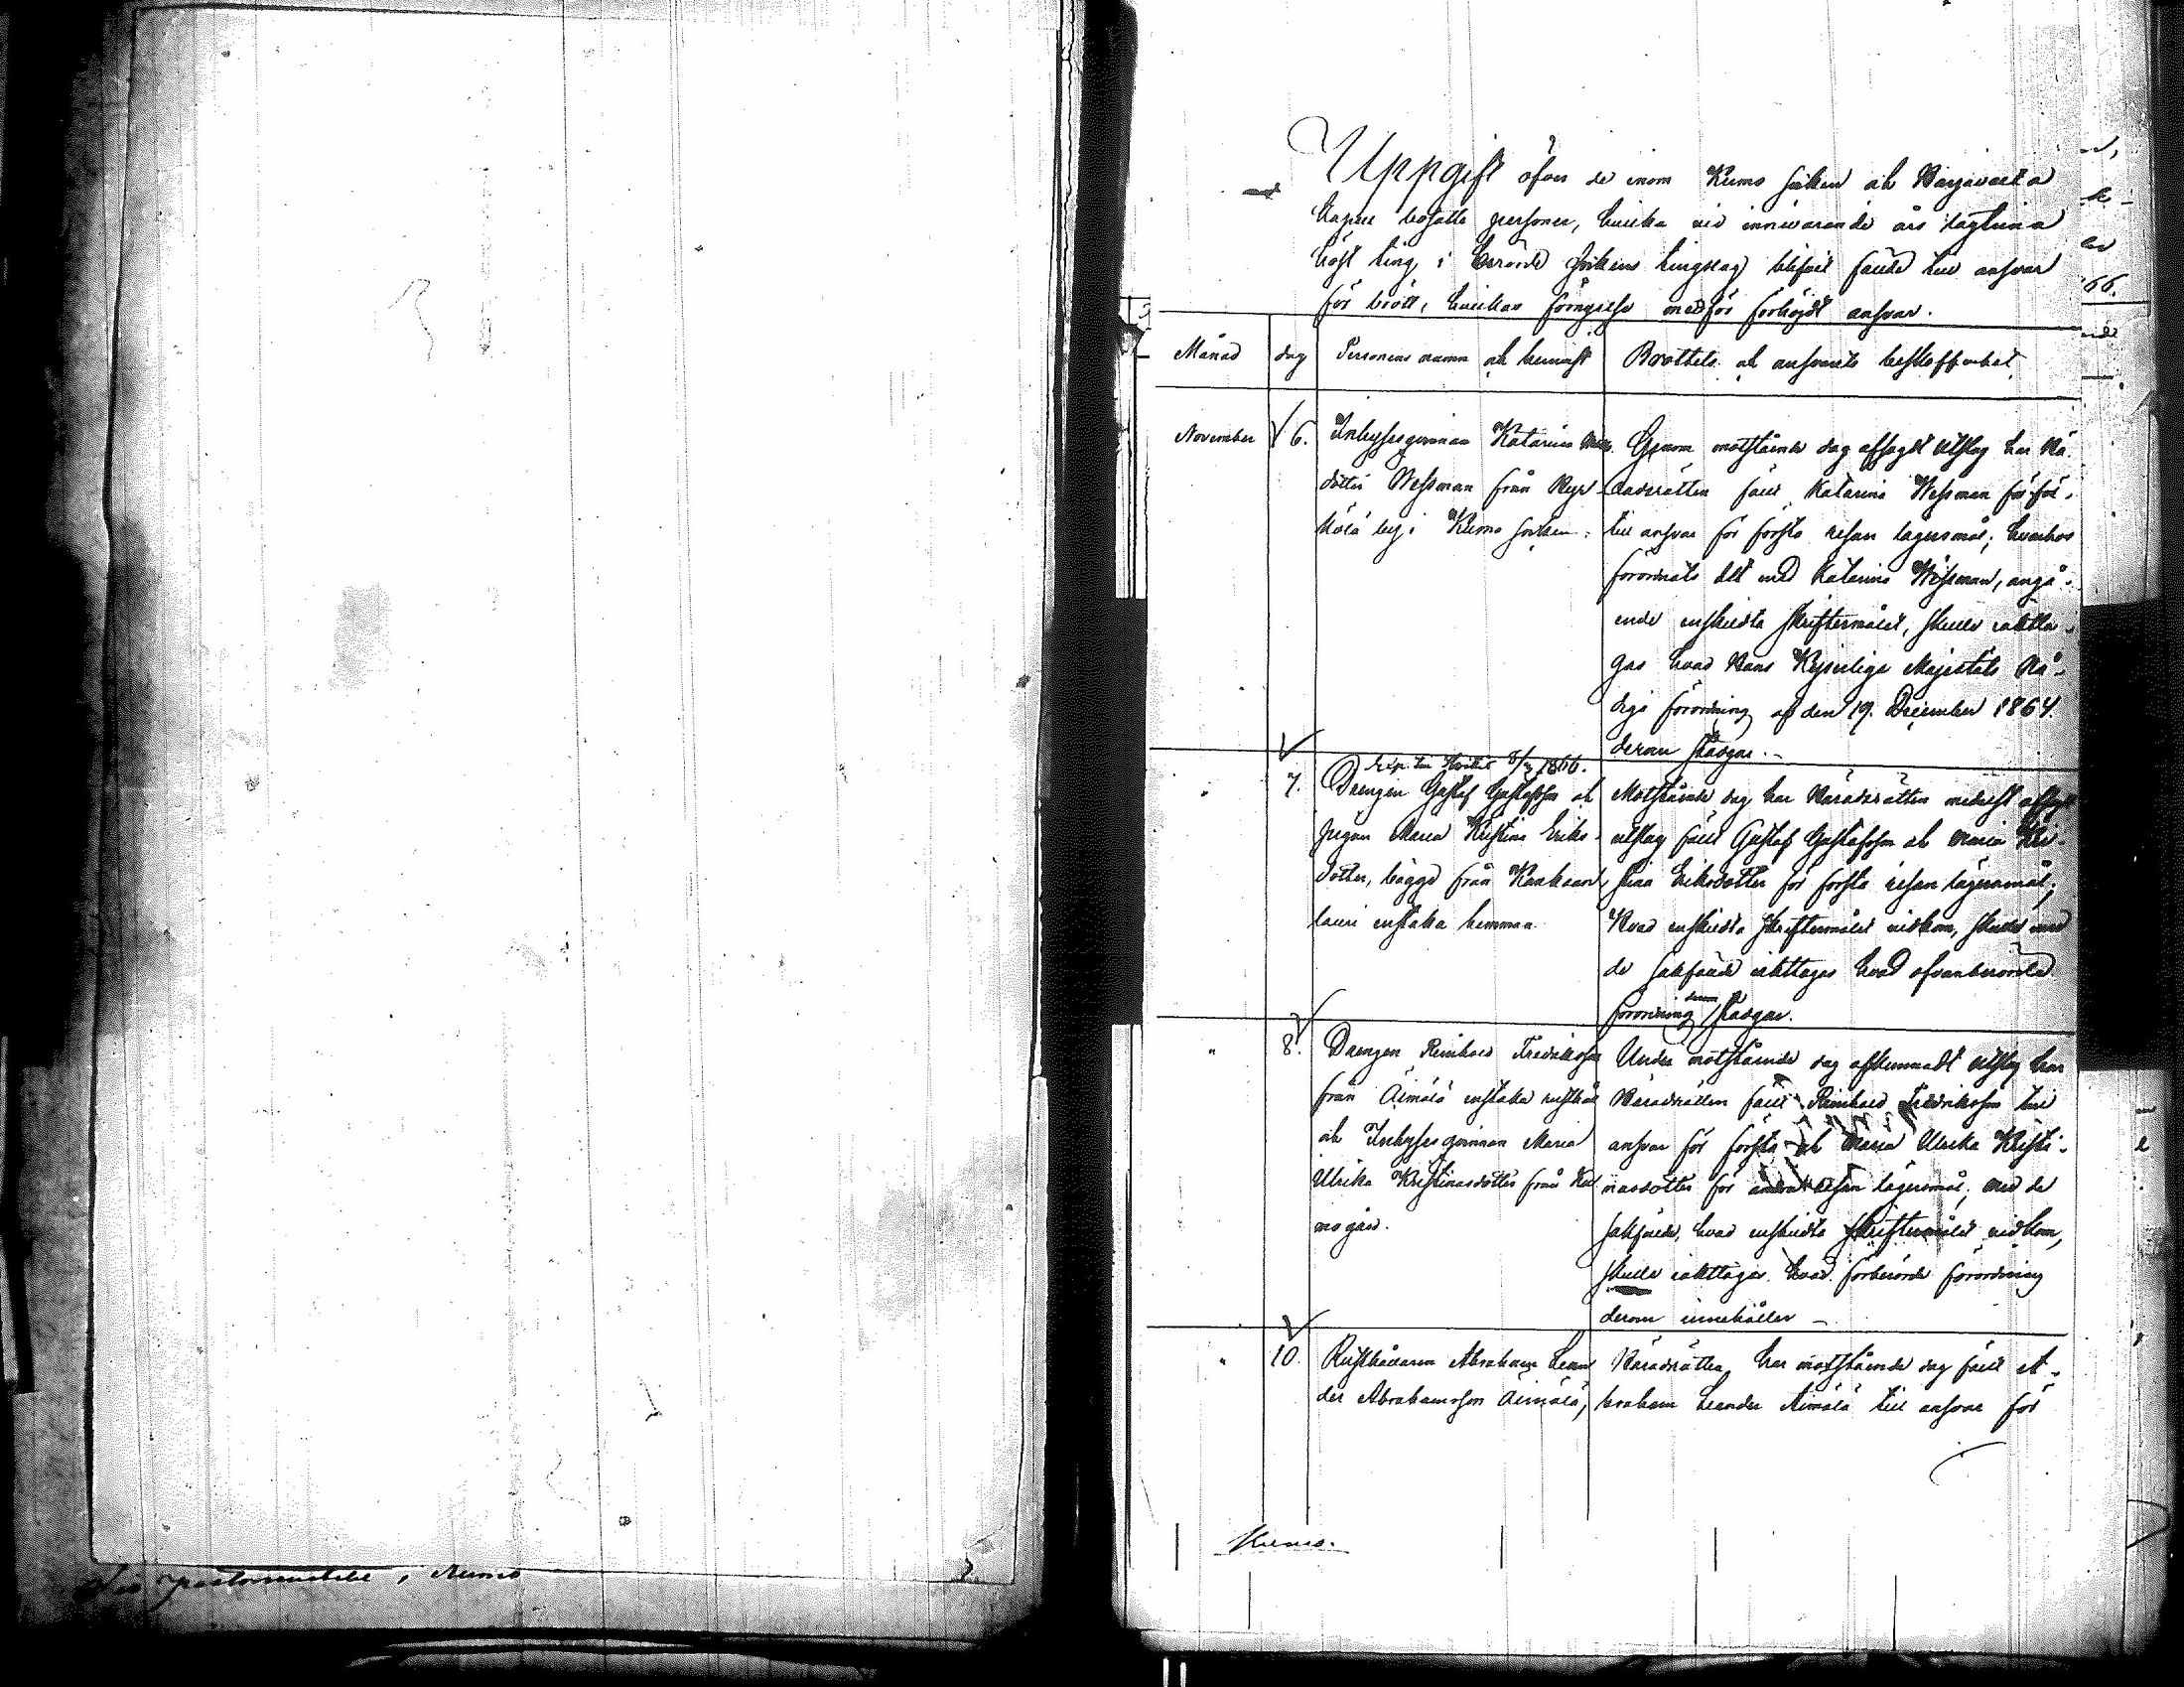 Uppgift öfver de inom Kumo socken och Harjavalta
kapell bosatte personer, hvilka vid innevarande års lagtima
höst ting i berörde sockens tingslag blifvit fälde till ansvar
för brott, hvilkas förnyelse medför förhöjdt ansvar.
Månad dag Personens namn och hemvist Brottets och ansvarets beskaffenhet
November 6. Inhysesqvinnan Katarina
dotter Wessman från
kölä by i Kumo socken.
Genom motstående dag afsagdt utslag har Hä-
radsrätten fält Katarina Wessman
till ansvar för första resan lägersmål; hvarhos
förordnats att med Katarina Wessman, angå-
ende enskildta skriftermålet, skulle iaktta-
gas hvad Hans Kejserliga Majestäts Nå-
diga förordning af den 19. December 1864.
derom stadgar.
" 7. Drengen Gustaf Gustafsson och
pigan Maria Kristina Eriks-
dotter, bägge från
lauri enstaka hemman.
Motstående dag har Häradsrätten medelst afsagdt
utslag fält Gustaf Gustafsson och Maria Kri-
stina Eriksdotter för första resan lägersmål;
Hvad enskildta skriftermålet vidkom, skulle med
de sakfälde iakttagas hvad ofvanberörda
förordning derom stadgar.
" 8. Drengen Reinhold Fredriksson
från Äimälä enstaka rusthåll
och Inhysesqvinnan Maria
Ulrika Kristinasdotter från Ku
mo gård.
Under motstående dag afkunnadt utslag har
Häradsrätten fält Reinhold Fredriksson till
ansvar för första och Maria Ulrika Kristi-
nasdotter för andra resan lägersmål; med de
sakfälde, hvad enskildta skriftermålet vidkom,
skulle iakttagas hvad förberörde förordning
derom innehåller
" 10. Rusthållaren Abraham Lean
der Abrahamsson Äimälä,
Häradsrätten har motstående dag fält A-
braham Leander Äimälä till ansvar för
Kumo.
pastorsembetet i Kumo